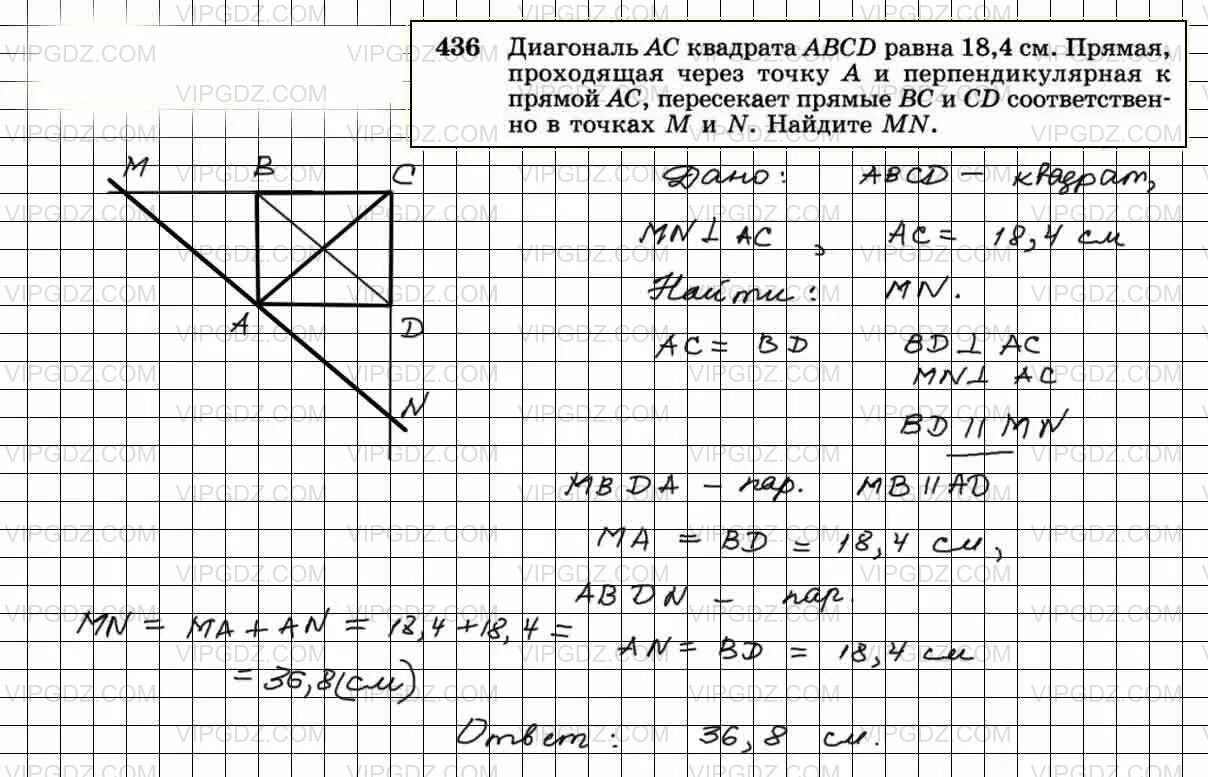 436 Диагональ AC квадрата ABCD равна 18,4 см. Прямая,
проходящая через точку A и перпендикулярная к
прямой AC, пересекает прямые BC и CD соответствен-
но в точках M и N. Найдите MN.
M B C
A D
N
Дано: ABCD — квадрат,
MN⊥AC, AC = 18,4 см
Найти: MN.
AC = BD BD⊥AC
MN⊥AC
BD || MN
MBDA – пар. MB || AD
MA = BD = 18,4 см,
ABDN – пар.
AN = BD = 18,4 см
MN = MA + AN = 18,4 + 18,4 =
= 36,8 (см)
Ответ: 36,8 см.
VIPGDZ.COM